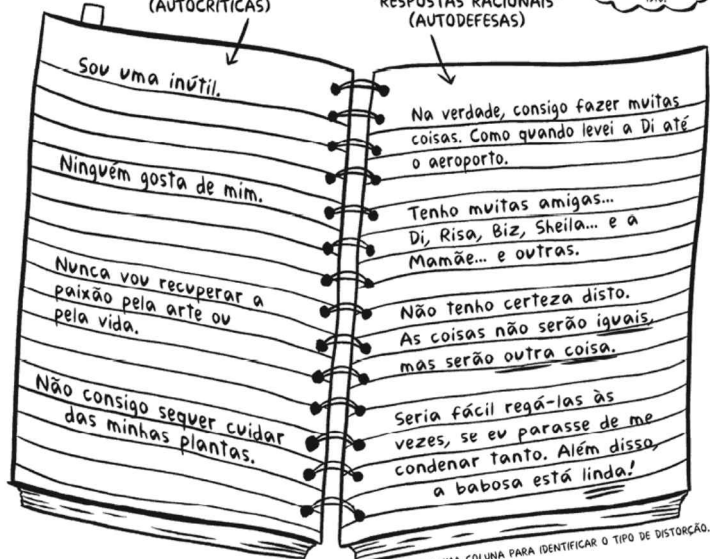 (AUTOCRÍTICAS)
RESPOSTAS RACIONAIS
(AUTODEFESAS)
Sou uma inútil.
Ninguém gosta de mim.
Nunca vou recuperar a
paixão pela arte ou
pela vida.
Não consigo sequer cuidar
das minhas plantas.
Na verdade, consigo fazer muitas
coisas. Como quando levei a Di até
o aeroporto.
Tenho muitas amigas...
Di, Risa, Biz, Sheila... e a
Mamãe... e outras.
Não tenho certeza disto.
As coisas não serão iguais,
mas serão outra coisa.
Seria fácil regá-las às
vezes, se eu parasse de me
condenar tanto. Além disso,
a babosa está linda!
COLUNA PARA IDENTIFICAR O TIPO DE DISTORÇÃO.